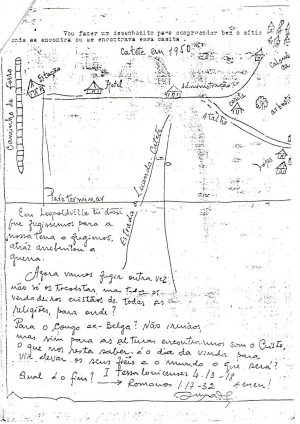 Vou fazer um desenhozito para compreender bem o sitio
onde se encontra ou se encontrava essa casita.
Catete em 1950
Caminho de ferro
Estação
Hotel
Administração
Catete
Atalho
Estrada de Luanda Catete
Para terminar
Em Leopoldville eu disse
que fugissemos para a
nossa terra e fugimos,
atráz arrebentou a
guerra.
Agora vamos fugir outra vez
não só os tocoistas mas todos os
verdadeiros cristãos de todas as
religiões, para onde?
Para o Congo ex-Belga? Não irmãos,
mas sim para as alturas encontrarmos com o Cristo,
o que nos resta saber, é o dia da vinda para
vir elevar os seus fieis e o mundo o que será?
Qual é o fim? I Tessalonicenses 4.13-18
Romanos 1.17-32 Amen!